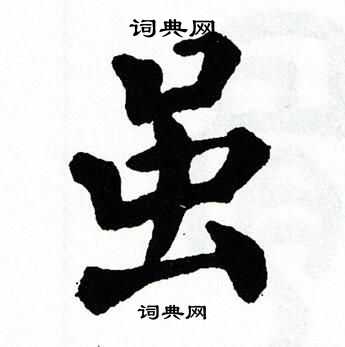 词典网
虽
词典网